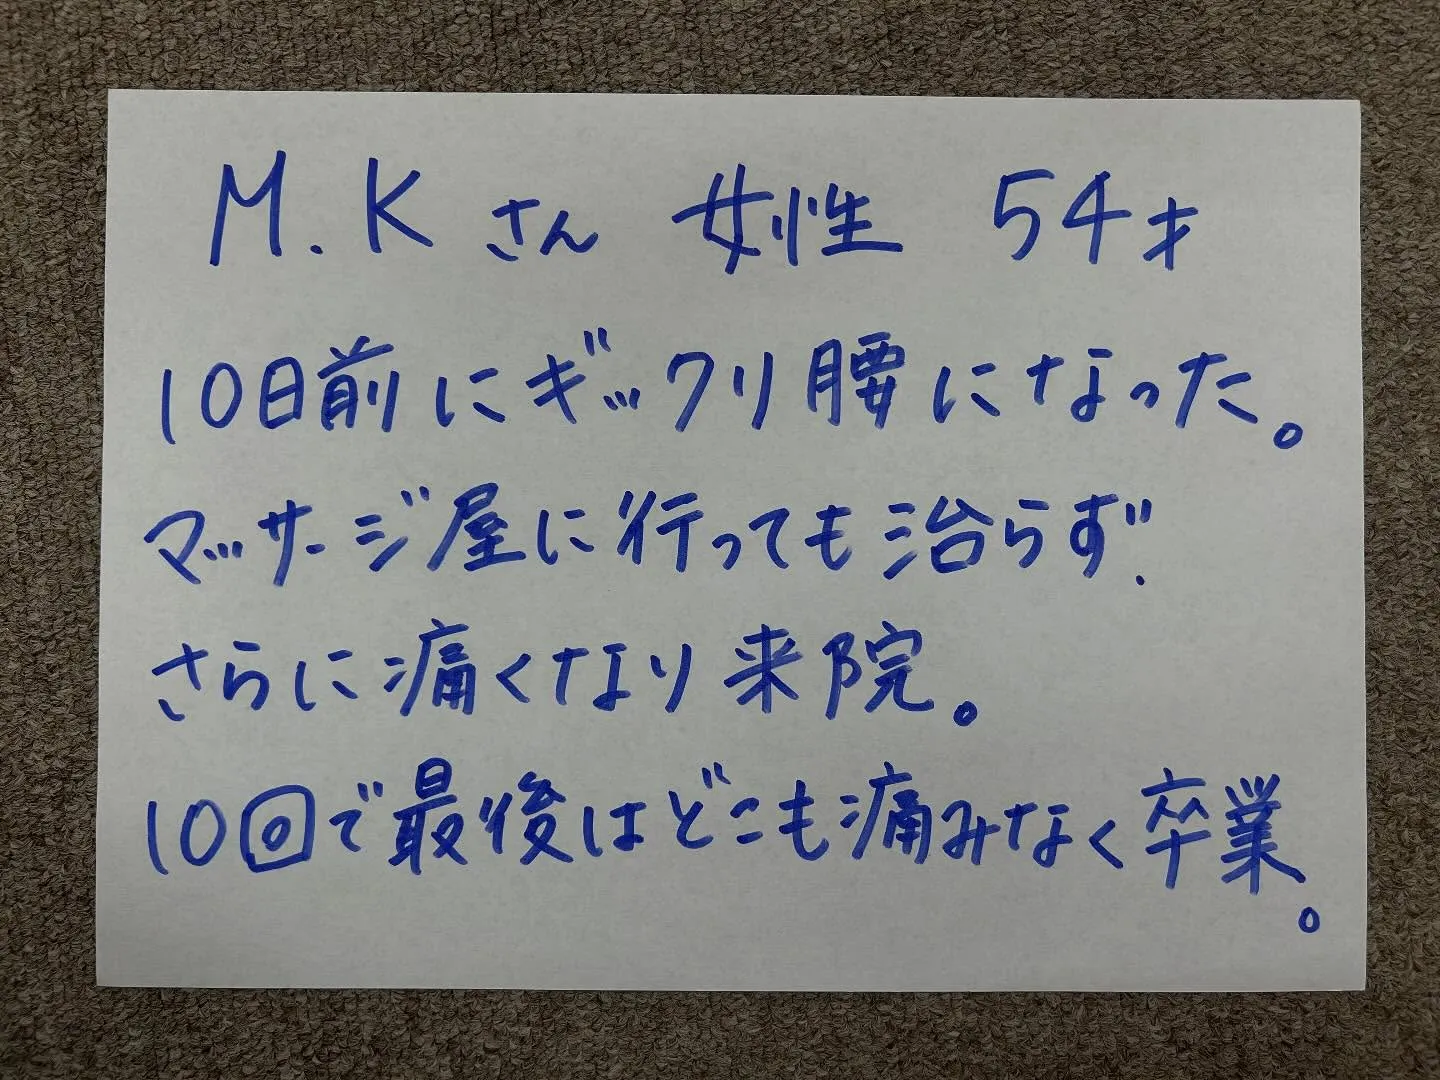 M.Kさん 女性 54才
10日前にギックリ腰になった。
マッサージ屋に行っても治らず.
さらに痛くなり来院。
10回で最後はどこも痛みなく卒業。